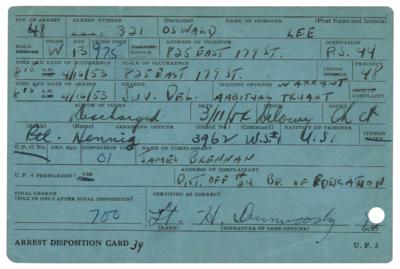 PCT. OF ARREST ARREST NUMBER (Surname) NAME OF PRISONER (First Name and Initials)
41 321 OSWALD LEE
MALE AGE ADDRESS OF PRISONER OCCUPATION
W 13 825 EAST 179 ST. P.S. 44
TIME AND DATE OF OCCURRENCE PLACE OF OCCURRENCE PRECINCT
A.M. 4/16/53 825 EAST 179 ST. 48
TIME AND DATE OF ARREST CHARGE SPECIFIC OFFENSE WARRANT OF COMPLAINT
A.M. 4/16/53 JUV. DEL. HABITUAL TRUANT
ACTION OF COURT DATE
Discharged 3/11/54 Delaney Ch Ct
ARRESTING OFFICER (Shield No.) (Command) NATIVITY OF PRISONER CITIZEN
Hennig 3962 U.S.
U.F. 61 No. DET. SQD. DISPOSITION CODE NO. NAME OF COMPLAINANT
01 JAMES BRENNAN
U.F. 4 FORWARDED? YES ADDRESS OF COMPLAINANT
DIST. OFF # 24 BD. OF EDUCATION
FINAL CHARGE CERTIFIED AS CORRECT
(FILL IN ONLY AFTER FINAL DISPOSITION)
700 Lt. H. Dunwoody
(RANK) (SIGNATURE OF DESK OFFICER)
ARREST DISPOSITION CARD 39 U.F. 5